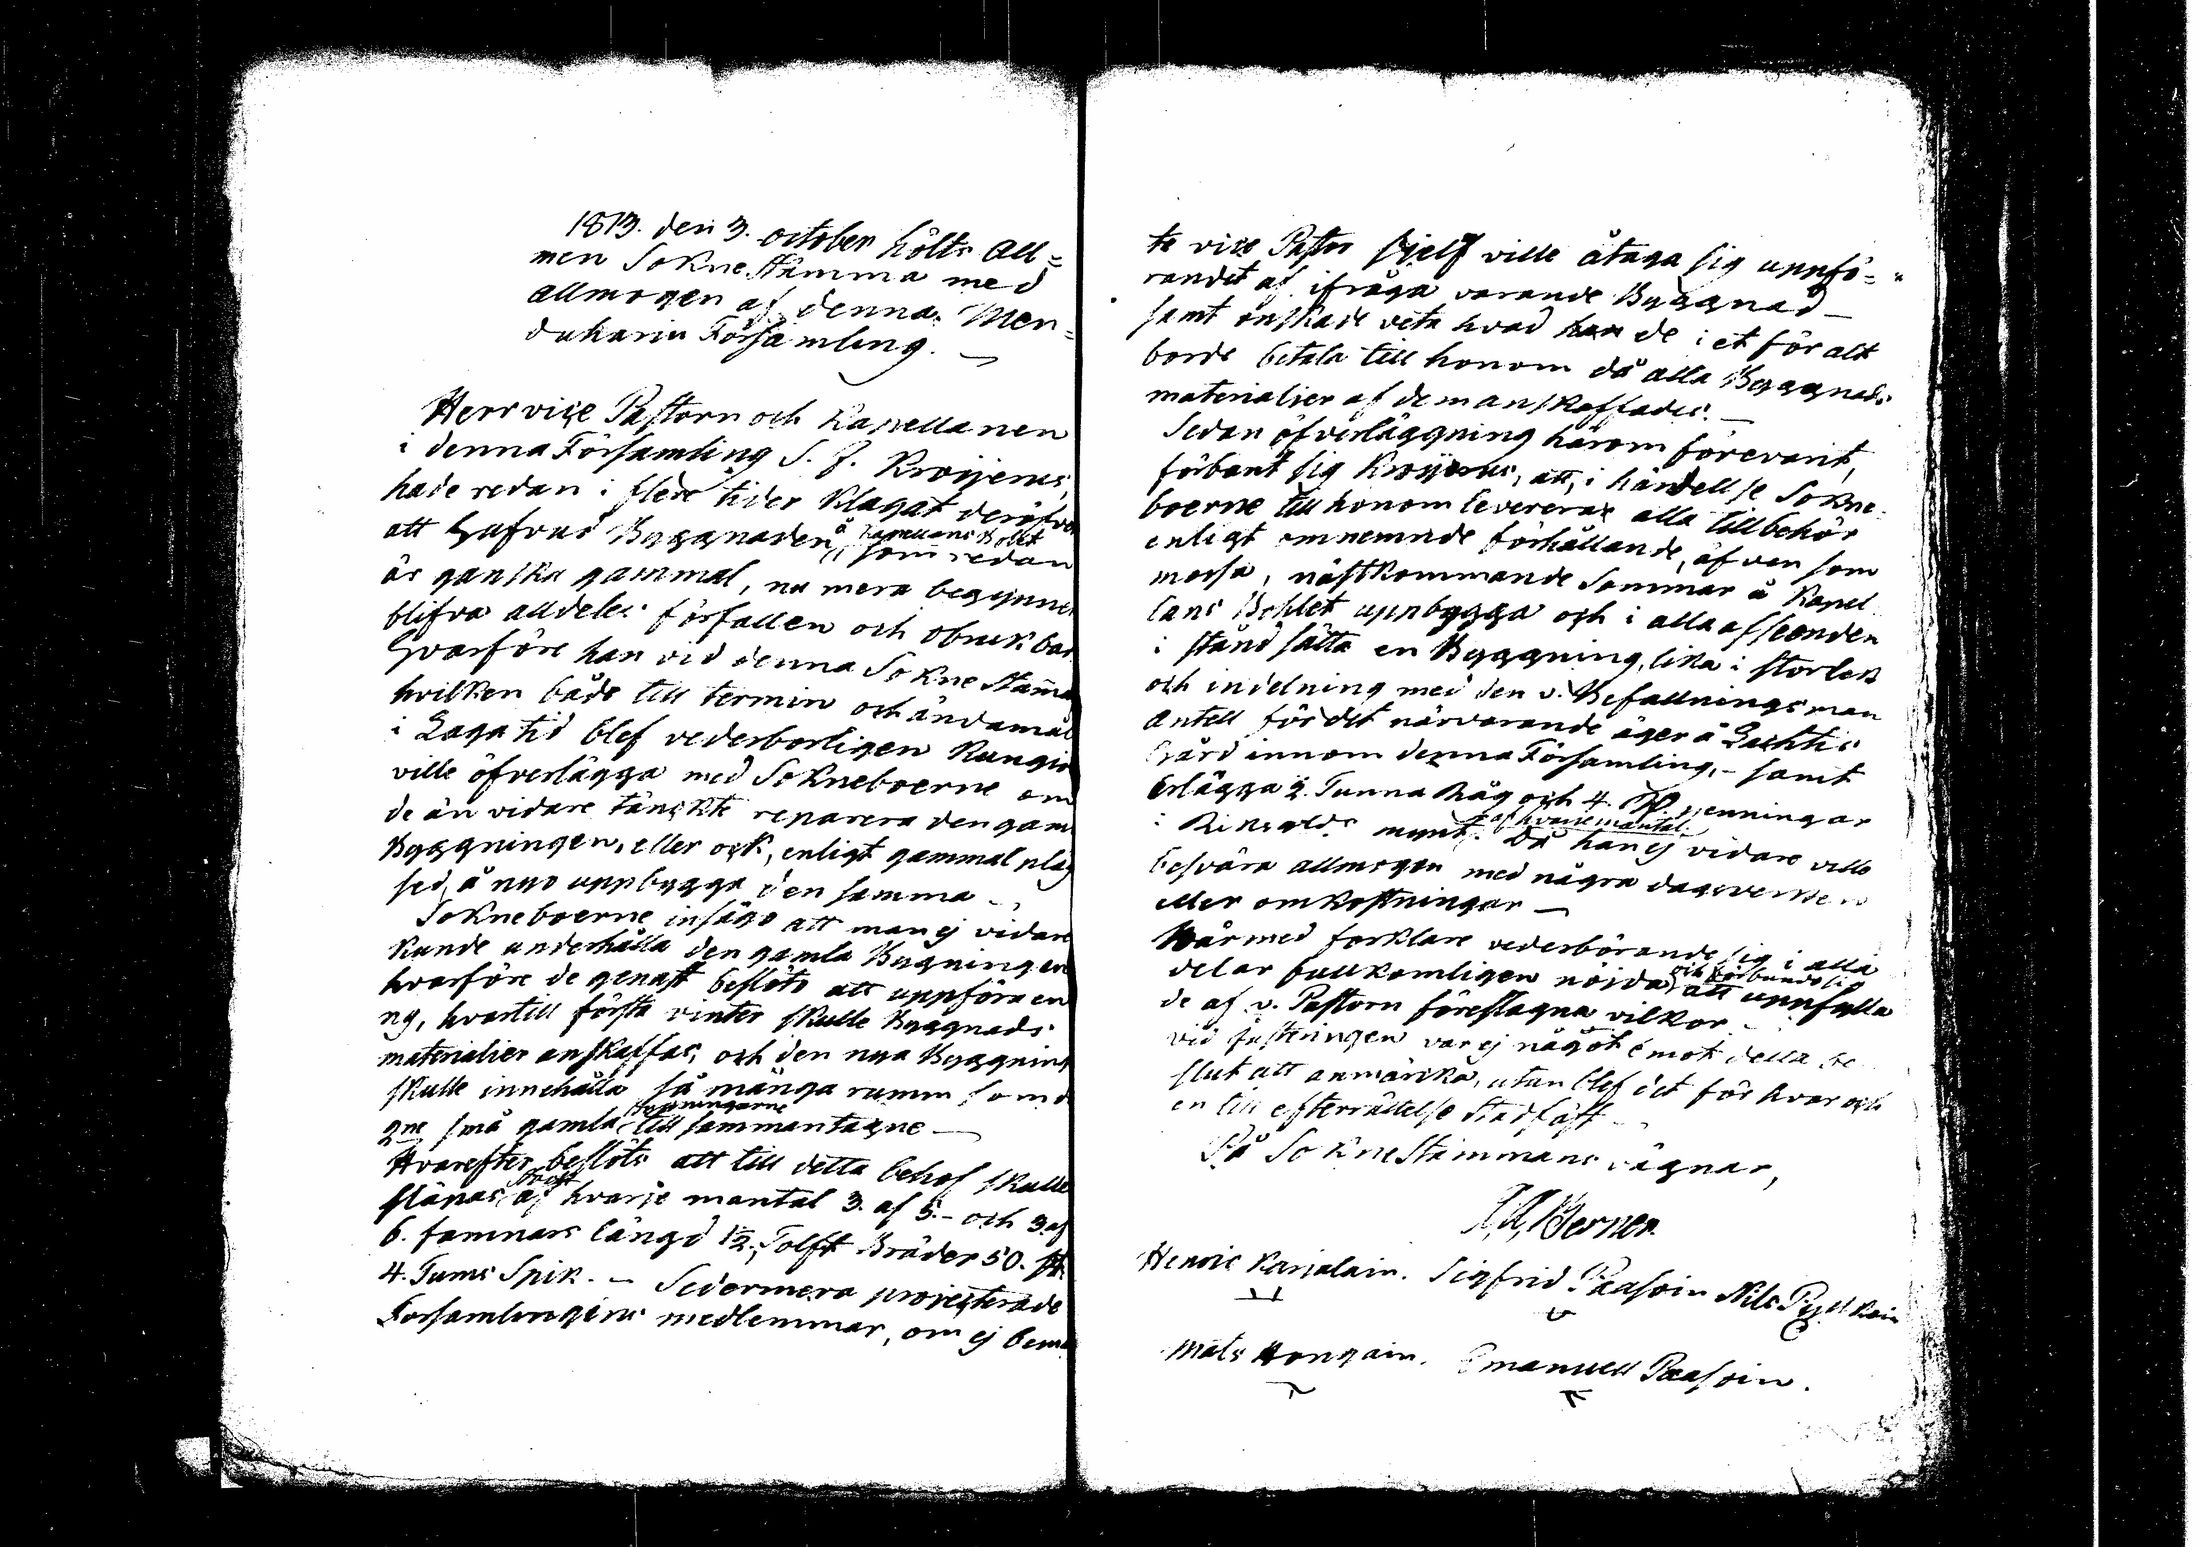 1813. den 3. october hölts All=
men SokneStämma med
allmogen af denna Men=
duhariu Församling. —
Herr vice Pastorn och Kapellanen
i denna Församling S. J. Krogerus,
hade redan i flere tider klagat deröfver
att Hufvud Byggnaden å Kapellans Bolet som redan
är ganska gammal, nu mera begynner
blifva alldeles förfallen och obrukbar
Hvarföre han vid denna Sokne Stamma
hvilken både till termin och ändamål
i Laga tid blef vederborligen kungiord
ville öfverlägga med Sokneboerne om
de än vidare tänckte reparera den gam
Byggningen, eller ock, enligt gammal plag
sed, å nyo uppbygga den samma —
Sokneboerne insågo att man ej vidare
kunde underhålla den gamla Bygningen
hvarföre de genast beslöto att uppföra en
ny, hvartill första vinter skulle Byggnads
materialier anskaffas, och den nya Byggning
skulle innehålla så många rumm som d
små gamla till sammantagne —
Hvarefter beslöts att till detta behof skulle
stånas af hvarje mantal 3. af 5. – och 3 af
6. famnars längd 1/2 Tolft Bräder 50. st.
4. Tums Spik. — Sedermera projecterade
Församlingens medlemmar, om ej bem
te vice Pastor sjelf ville åtaga sig uppfö=
randet af ifråga varande Byggnad —
samt önskade veta hvad de i et för alt
borde betala till honom då alla Byggnads
materialier af dem anskaffades. —
Sedan öfverläggning härom förevarit,
förbant sig Krogerus, att, i händellse Sokne
boerne till honom leverera alla tillbehör
enligt omnemnde förhållande, äfven som
mossa, nästkommande Sommar å Kapel
lans Bohlet uppbygga och i alla afseenden
i stånd sätta en Byggning, lika i storlek
och indelning med den v. Befallningsman
Antell för det närvarande äger å Lachtis
Gård innom denna Församling, – samt
Erlägga 2. Tunna Råg och 4. penningar
i Riksgelds mynt af hvarje mantal. Då han ej vidare ville
besvära allmogen med några dagsverken
eller omkostningar —
Härmed forklare vederbörande sig i alla
delar fullkomligen nöjda, och förbundo sig att uppfylla
de af v. Pastorn föreslagna vilkor. —
vid justeringen var ej något emot detta be
slut att anmärka, utan blef det för hvar och
en till efterrättelse stadfäst —
På Sokne Stämmans vägnar,
Henric Karjalain. Sigfrid Paasoin Nils Pyykköin
Mats Hongain. Emanuell Paasoin.